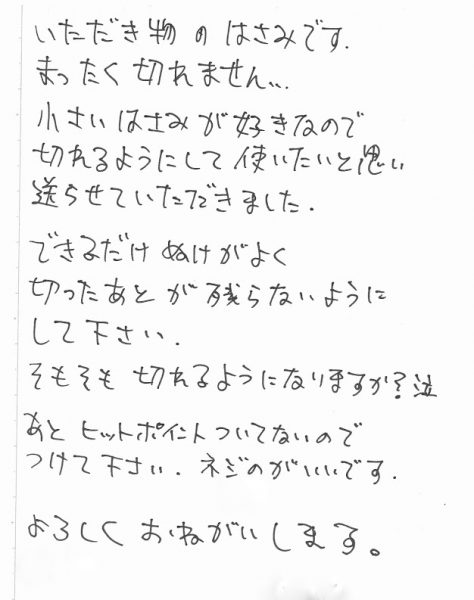 いただき物のはさみです.
まったく切れません...
小さいはさみが好きなので
切れるようにして使いたいと思い
送らせていただきました.
できるだけぬけがよく
切ったあとが残らないように
して下さい.
そもそも切れるようになりますか?泣
あとヒットポイントついてないので
つけて下さい.ネジのがいいです.
よろしくおねがいします。